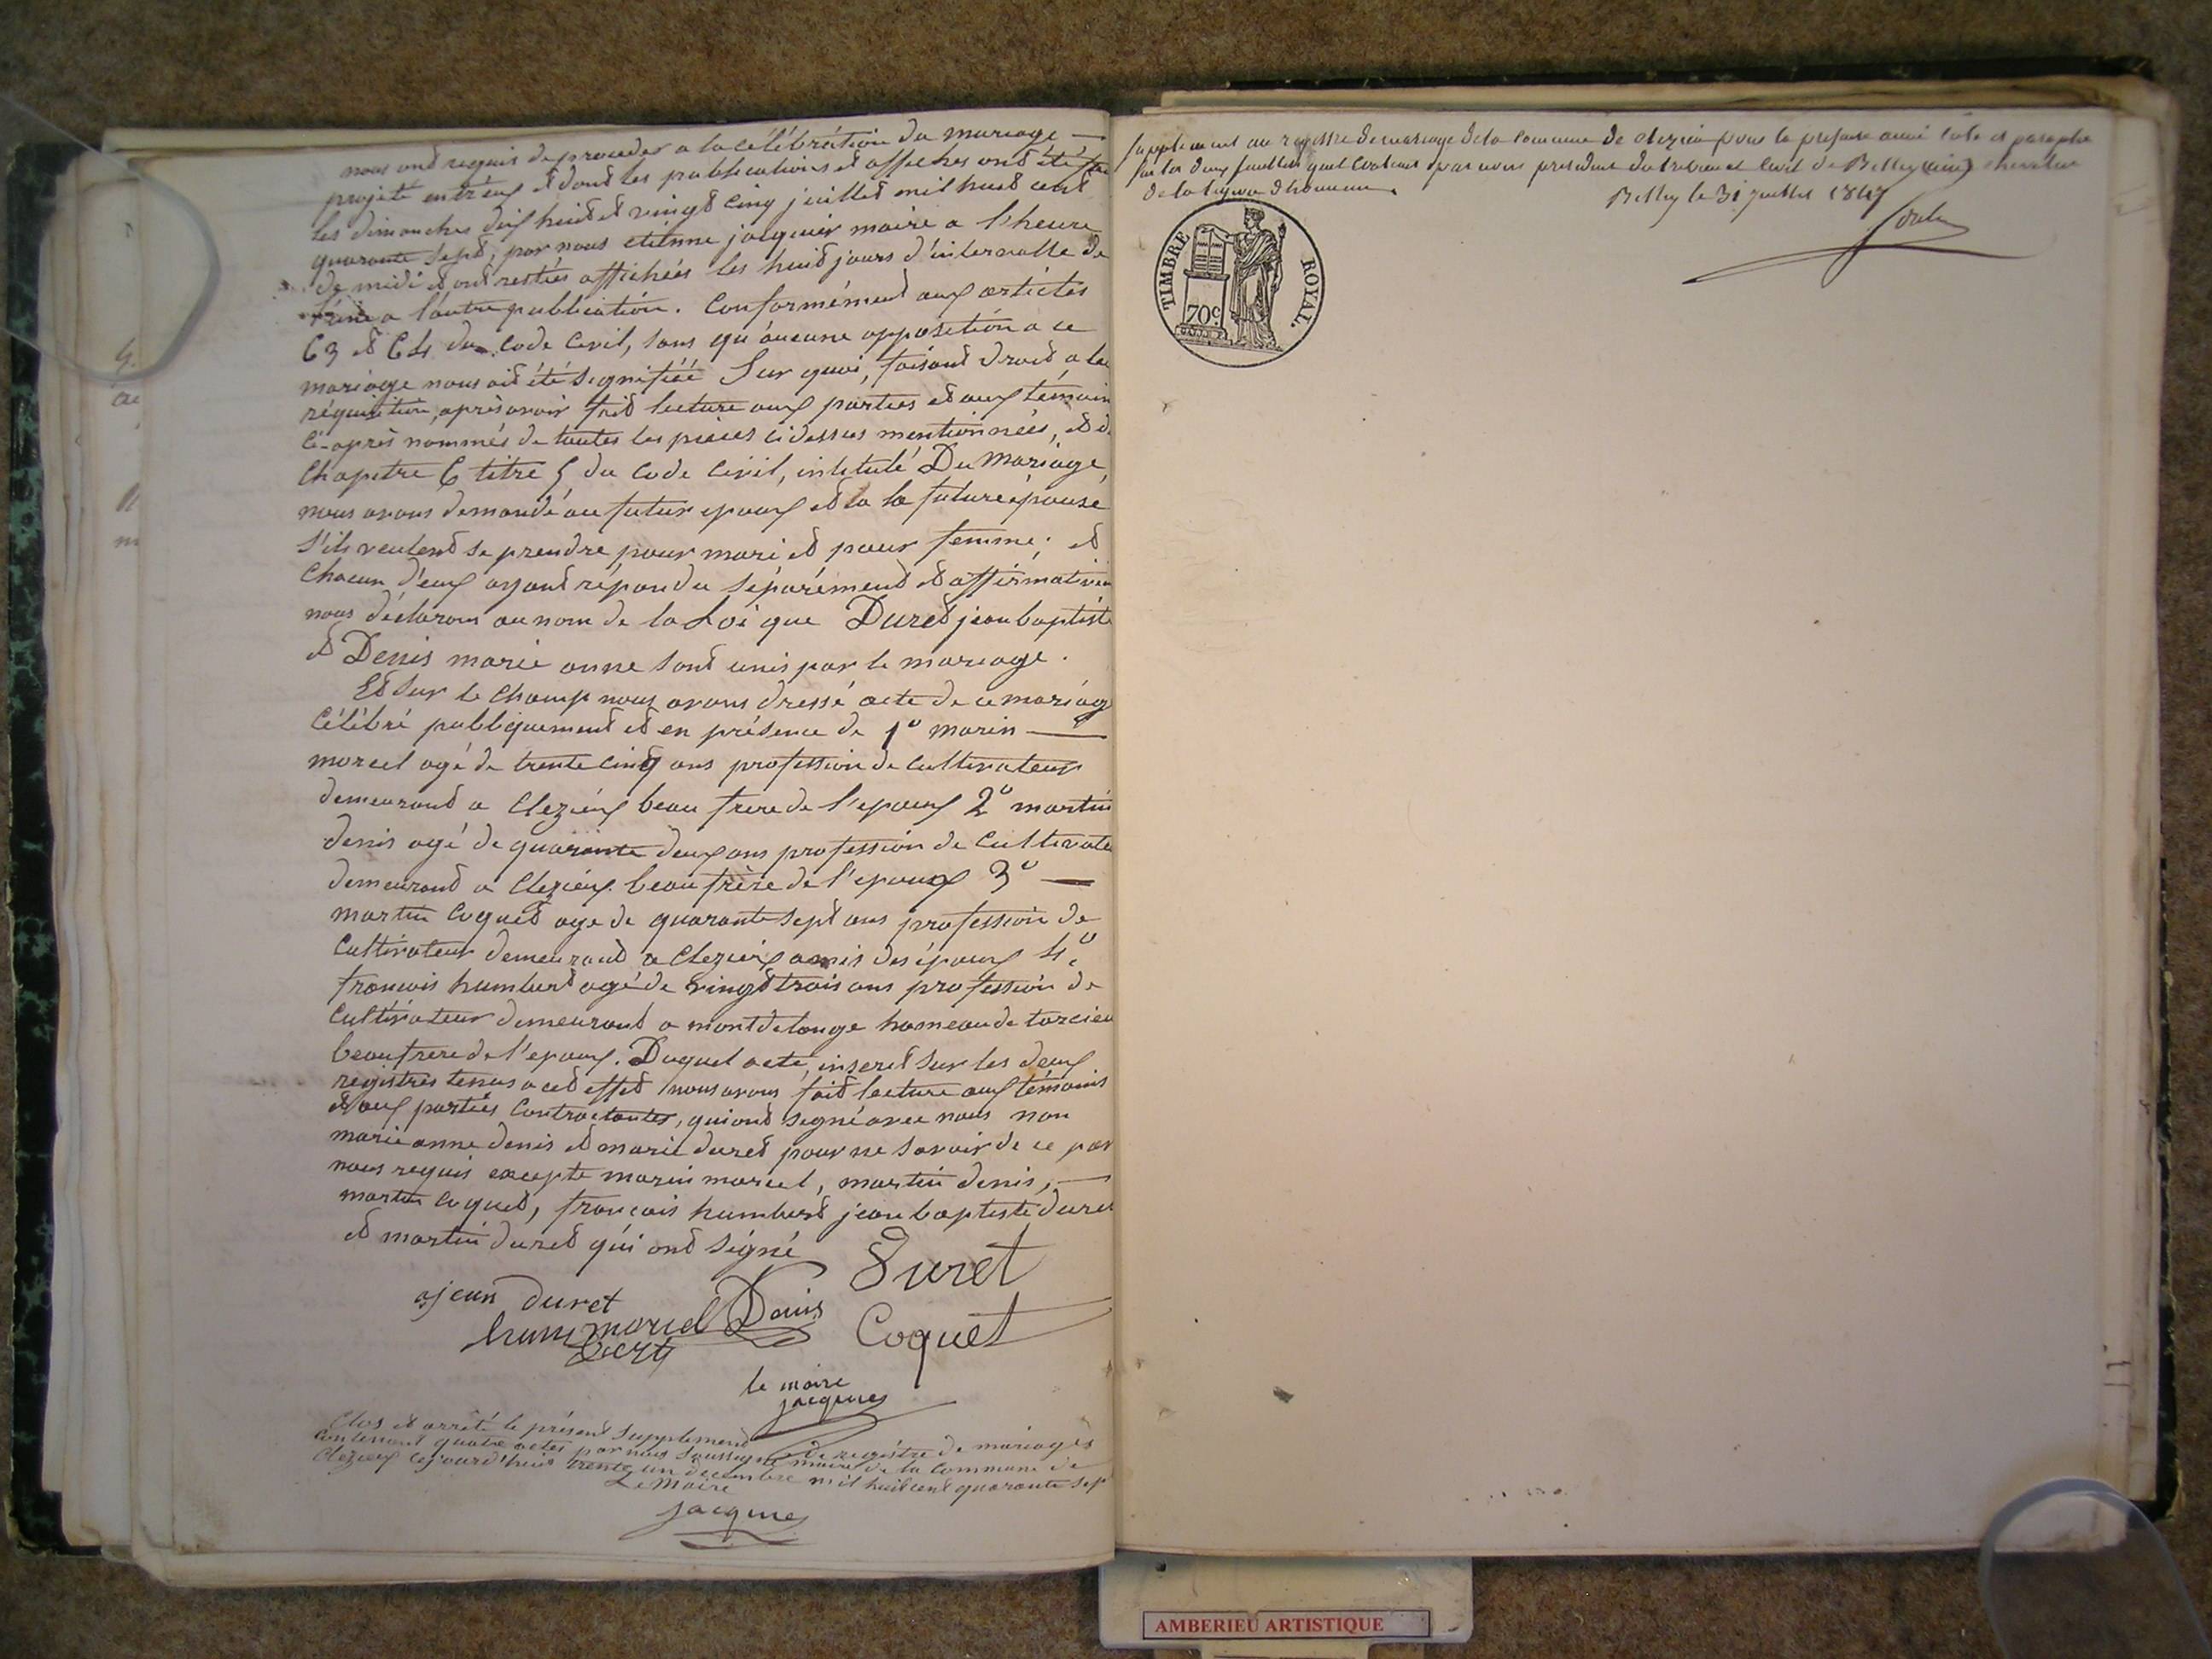 nous ont requis de proceder a la célébration du mariage —
projeté entr'eux et dont les publications et affiches ont été
les dimanches dix huit et vingt cinq juillet mil huit cent
quarante sept, par nous etienne jacquier maire a l'heure
de midi et ont restées affichées les huit jours d'intervalle de
l'une a l'autre publication. Conformément aux articles
63 et 64 du Code Civil, sans qu'aucune opposition a ce
mariage nous ait été signifiée Sur quoi, faisant droit a la
réquisition, après avoir fait lecture aux parties et aux témoin
ci-après nommés de toutes les pièces ci dessus mentionnées, et d
Chapitre 6 titre 5 du Code Civil, intitulé Du Mariage,
nous avons demandé au futur epoux et a la future épouse
s'ils veulent se prendre pour mari et pour femme; et
Chacun d'eux ayant répondu séparément et affirmativem
nous déclarons au nom de la Loi que Duret jean baptiste
et Denis marie anne sont unis par le mariage.
Et sur le Champ nous avons dressé acte de ce mariag
Célébré publiquement et en présence de 1º marin —
marcel agé de trente cinq ans profession de Cultivateur
demeurant a Clezieux beau frere de l'epoux 2º martin
denis agé de quarante deux ans profession de Cultivate
demeurant a Clezieux beau frère de l'epoux 3º —
martin Coquet age de quarante sept ans profession de
Cultivateur demeurant a Clezieux amis des époux 4º
francois humbert agé de vingt trois ans profession de
Cultivateur demeurant a montdelange hameau de torcieu
beau frere de l'epoux. Duquel acte, inseret sur les deux
registres tenus a cet effet nous avons fait lecture aux témoins
et aux parties Contractantes, qui ont signé avec nous non
marie anne denis et marie duret pour ne savoir de ce par
nous requis excepte marin marcel, martin denis, —
martin Coquet, francois humbert jean baptiste duret
et martin duret qui ont signé
Duret
jean duret
hum marcel Denis
bert
Coquet
le maire
jacquier
Clos et arrêté le présent supplement de registre de mariages
Contenant quatre actes par nous soussigné maire de la Commune de
Clezieux cejourd'hui trente un decembre mil huit cent quarante sept
Le Maire
jacquier
Supplement au registre de mariage de la Commune de Clezieu pour la presente année Coté et paraphé
sur les deux feuillets quil Contient par nous president du tribunal Civil de Belley (ain) chevalier
de la legion d'honneur.
Belley le 31 juillet 1847
TIMBRE ROYAL.
70c.
AMBERIEU ARTISTIQUE